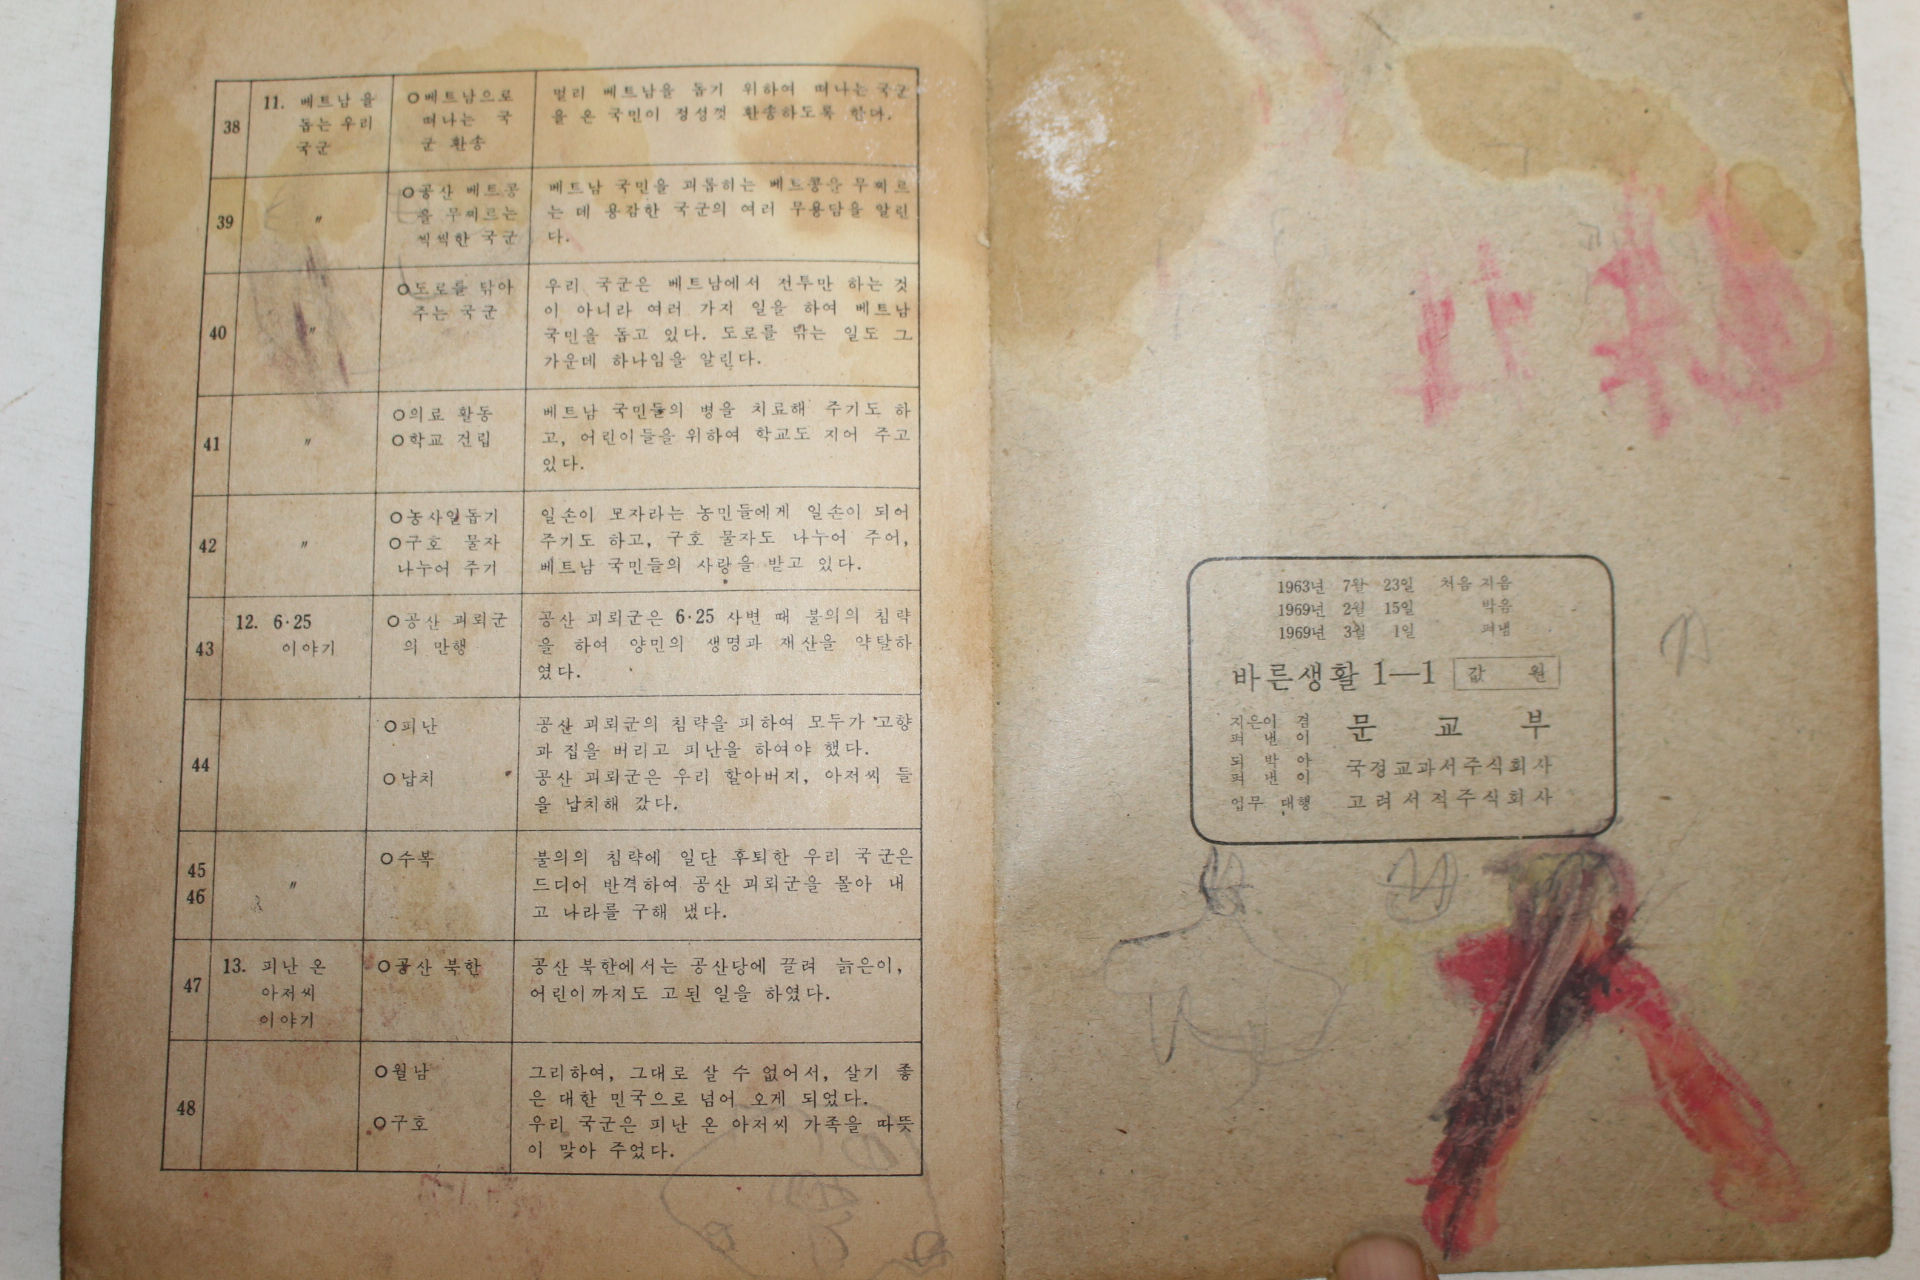 38
11. 베트남을
돕는 우리
국군
○베트남으로
떠나는 국
군 환송
멀리 베트남을 돕기 위하여 떠나는 국군
을 온 국민이 정성껏 환송하도록 한다.
39
〃
○공산 베트콩
을 무찌르는
씩씩한 국군
베트남 국민을 괴롭히는 베트콩을 무찌르
는 데 용감한 국군의 여러 무용담을 알린
다.
40
〃
○도로를 닦아
주는 국군
우리 국군은 베트남에서 전투만 하는 것
이 아니라 여러 가지 일을 하여 베트남
국민을 돕고 있다. 도로를 닦는 일도 그
가운데 하나임을 알린다.
41
〃
○의료 활동
○학교 건립
베트남 국민들의 병을 치료해 주기도 하
고, 어린이들을 위하여 학교도 지어 주고
있다.
42
〃
○농사일돕기
○구호 물자
나누어 주기
일손이 모자라는 농민들에게 일손이 되어
주기도 하고, 구호 물자도 나누어 주어,
베트남 국민들의 사랑을 받고 있다.
43
12. 6·25
이야기
○공산 괴뢰군
의 만행
공산 괴뢰군은 6·25 사변 때 불의의 침략
을 하여 양민의 생명과 재산을 약탈하
였다.
44
○피난
○납치
공산 괴뢰군의 침략을 피하여 모두가 고향
과 집을 버리고 피난을 하여야 했다.
공산 괴뢰군은 우리 할아버지, 아저씨 들
을 납치해 갔다.
45
46
〃
○수복
불의의 침략에 일단 후퇴한 우리 국군은
드디어 반격하여 공산 괴뢰군을 몰아 내
고 나라를 구해 냈다.
47
13. 피난 온
아저씨
이야기
○공산 북한
공산 북한에서는 공산당에 끌려 늙은이,
어린이까지도 고된 일을 하였다.
48
○월남
○구호
그리하여, 그대로 살 수 없어서, 살기 좋
은 대한 민국으로 넘어 오게 되었다.
우리 국군은 피난 온 아저씨 가족을 따뜻
이 맞아 주었다.
1963년 7월 23일 처음 지음
1969년 2월 15일 박음
1969년 3월 1일 펴냄
바른생활 1—1 값 원
지은이 겸
펴 낸 이
문 교 부
되 박 아
펴 낸 이
국정교과서주식회사
업무 대행 고려서적주식회사